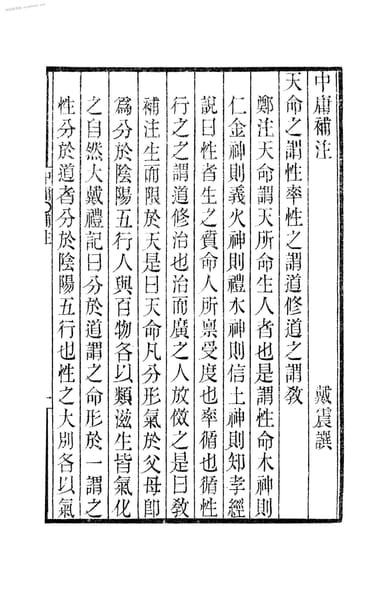 中庸補注　戴震譔
天命之謂性率性之謂道修道之謂教
鄭注天命謂天所命生人者也是謂性命木神則
仁金神則義火神則禮水神則信土神則知孝經
說曰性者生之質命人所禀受度也率循也循性
行之之謂道修治也治而廣之人放傚之是曰教
補注生而限於天是曰天命凡分形氣於父母卽
爲分於陰陽五行人與百物各以類滋生皆氣化
之自然大戴禮記曰分於道謂之命形於一謂之
性分於道者分於陰陽五行也性之大別各以氣
中庸補注
一